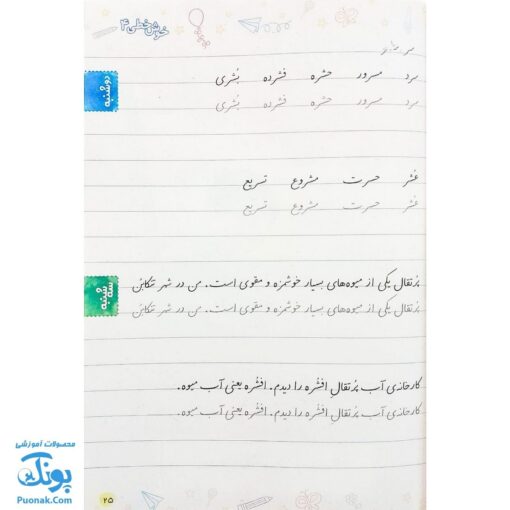 خوش خطی ۴
سرد مسرور حشره فشرده بُشری
دوشنبه
سرد مسرور حشره فشرده بُشری
عُشر حسرت مشروع تسریع
عُشر حسرت مشروع تسریع
پرتقال یکی از میوه‌های بسیار خوشمزه و مقوی است. من در شهر تنکابن
سه شنبه
پرتقال یکی از میوه‌های بسیار خوشمزه و مقوی است. من در شهر تنکابن
کارخانه‌ی آب پرتقال افشُره را دیدم. افشُره یعنی آب میوه.
کارخانه‌ی آب پرتقال افشُره را دیدم. افشُره یعنی آب میوه.
محصولات آموزشی
پونک
Puonak.Com
۲۵